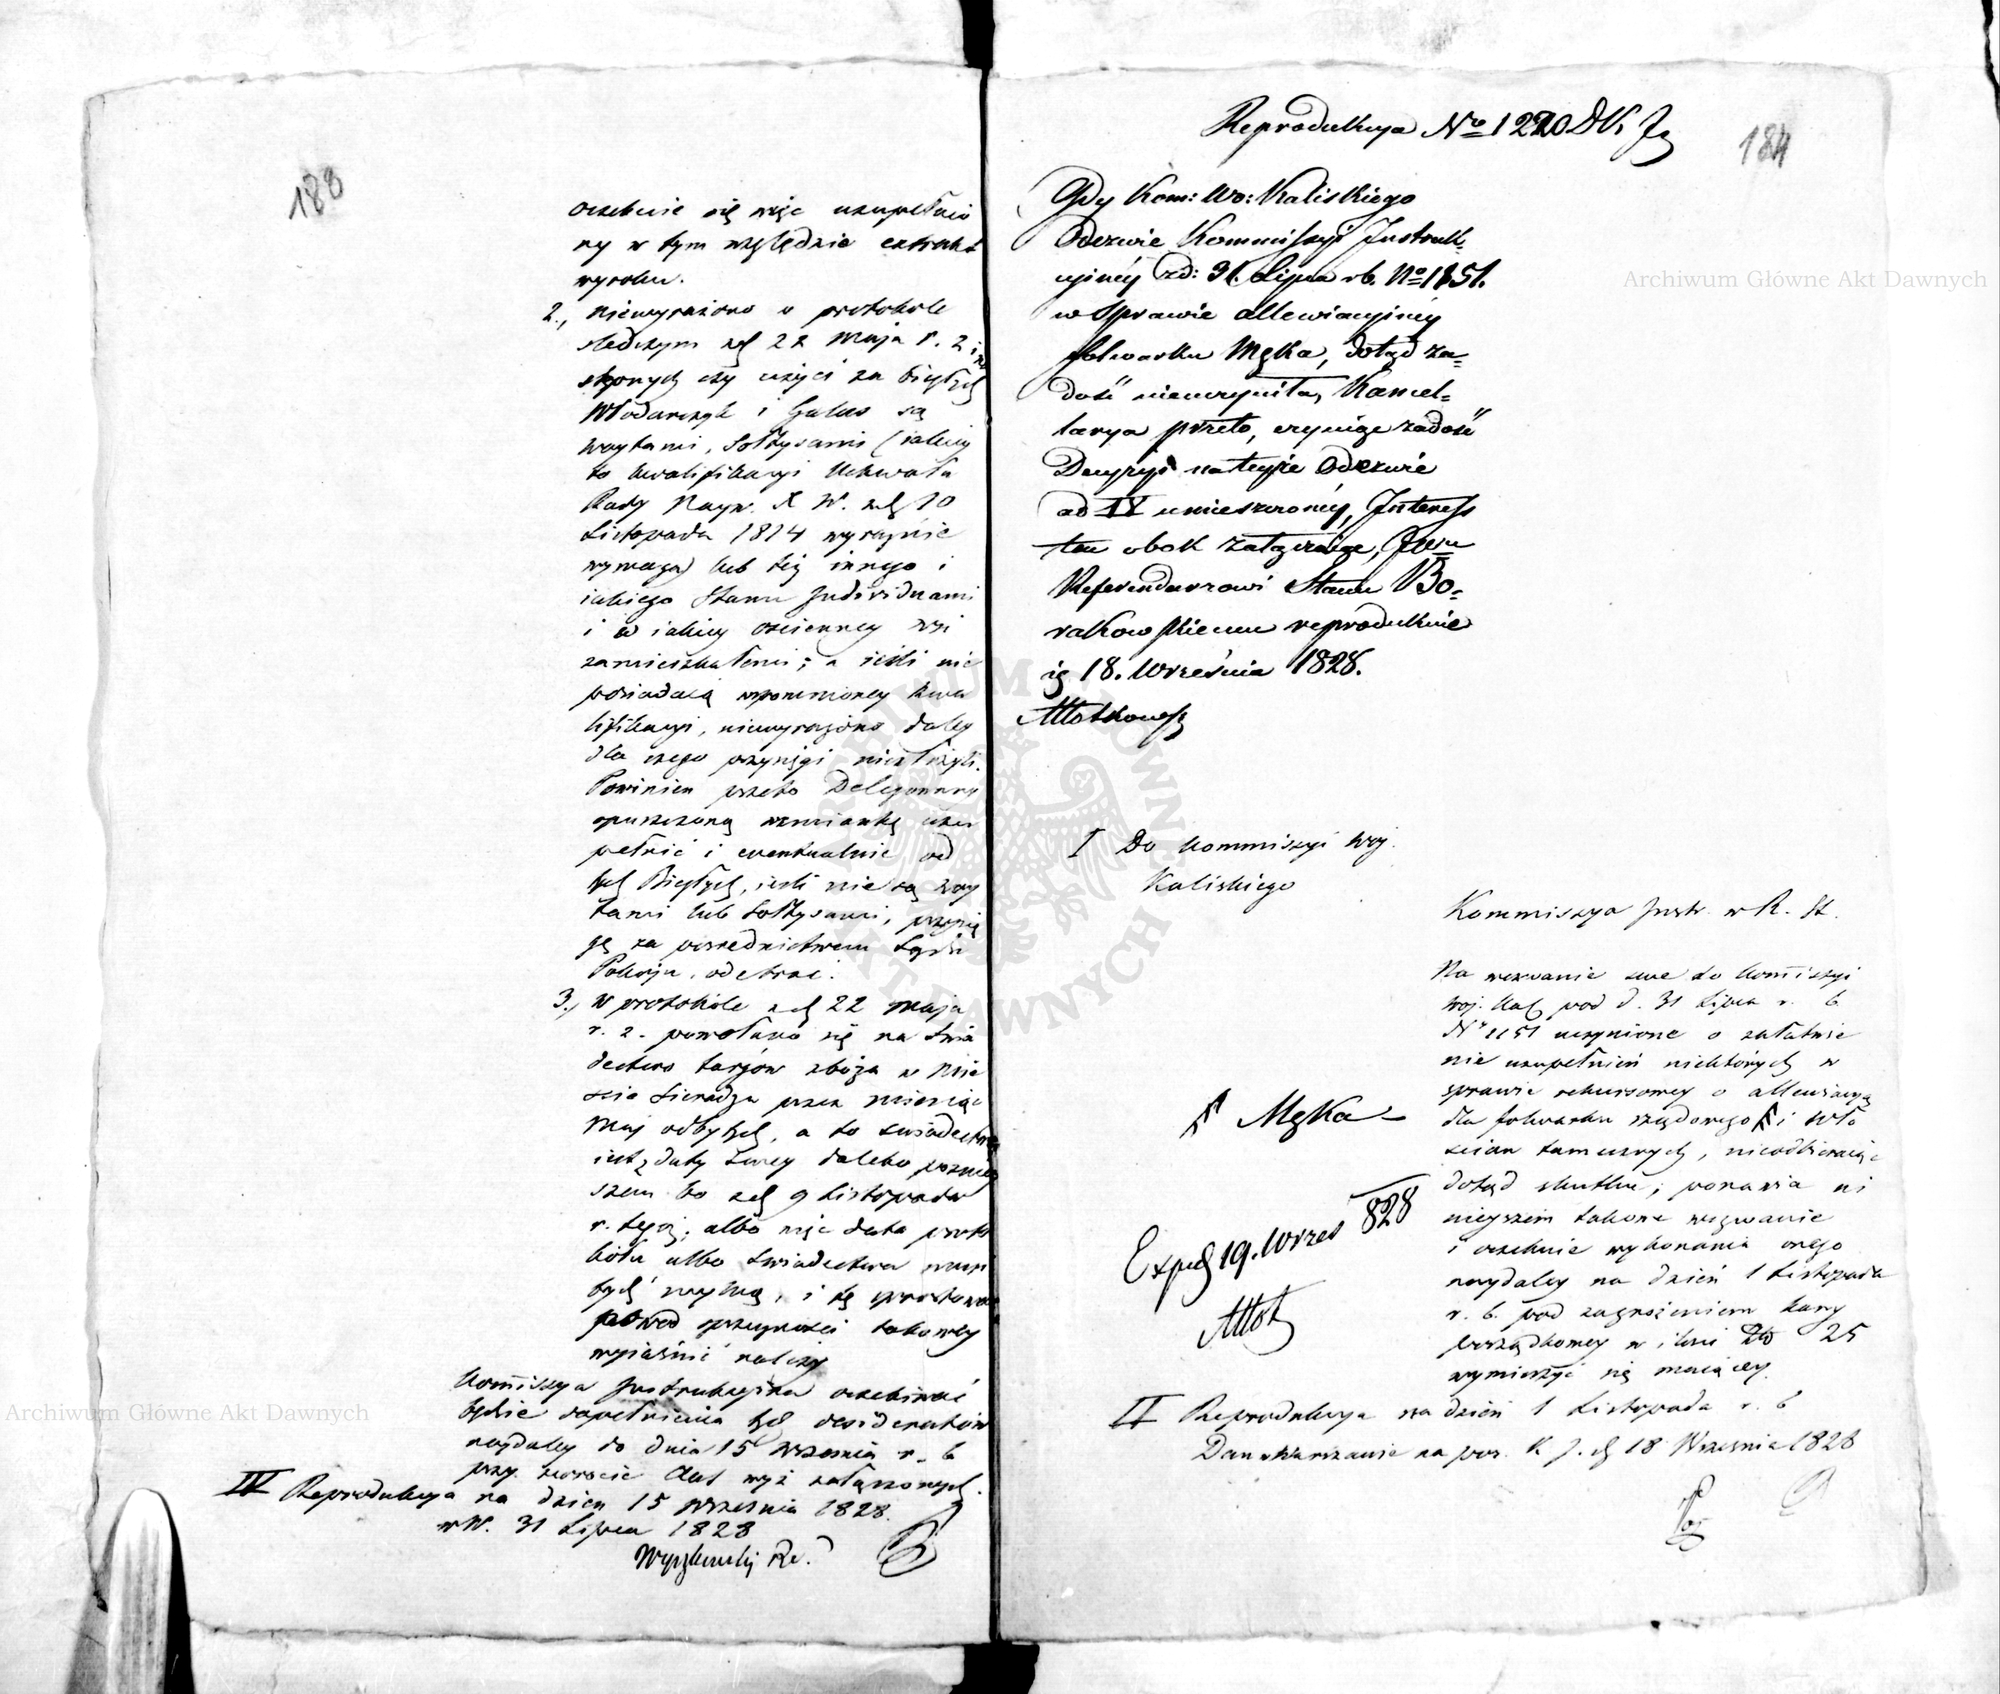 188
oczekuie się więc uzupełnio
ny w tym względzie extrakt
wyroku.
2., niewyrażono w protokole
śledczym z d. 22 Maja r. z i in
nych czy użyci za biegłych
Włodarczyk i Galus są
woytami, Sołtysami (iakiey
to kwalifikacyi Uchwała
Rady Nayw. X W. z d. 10
Listopada 1814 wyraźnie
wymaga) lub też innego i
iakiego Stanu Individuami
i w iakiey osciennej wsi
zamieszkałemi; a ieśli nie
posiadaią wspomnioney kwa
lifikacyi, niewyrażono daley
dla czego przysięgi niezłożyli.
Powinien przeto Delegowany
opuszczoną wzmiankę uzu
pełnić i ewentualnie od
tych Biegłych, ieśli nie są woy
tami lub Sołtysami, przysię
gę za pośrednictwem Sądu
Pokoju, odebrać.
3., W protokóle z d. 22 Maja
r. z. powołano się na świa
dectwo targów zboża w Mie
ście Sieradzu przez miesiąc
Maj odbytych, a to świadectwo
iest daty swey daleko poźniey
szem bo z d. 9 Listopada
r. tegoż; albo więc data proto
kółu albo świadectwa musi
bydź mylną, i tę sprostować
powód sprzeczności takowey
wyiaśnić należy
Kommiszya Instrukcyjna oczekiwać
będzie dopełnienia tych desideratów
naydaley do dnia 15 Września r. b
przy zwrocie Akt wyż załączonych.
IV Reprodukcya na dzień 15 Września 1828.
w W. 31 Lipca 1828
Reprodukcya No 1220 DK Jg
184
Gdy Kom: Wo: Kaliskiego
Odezwie Kommissyi Instruk-
cyjnéy zd: 31. Lipca rb. No 1151.
w Sprawie allewiacyjnéy
folwarku Męka, dotąd za-
dość nieuczyniła, Kancel-
larya przeto, czyniąc zadość
Decyzyi na teyże Odezwie
ad IV umieszczonéy, Interess
ten obok załączaiąc, JWmu
Referendarzowi Stanu Bo-
rakowskiemu reprodukuie
ię 18. Września 1828.
I Do Kommiszyi Woj.
Kaliskiego
Kommiszya Instr. w R. St.
Na wezwanie swe do Kommiszyi
Woj. Kal. pod d. 31 Lipca r. b
No 1151 uczynione o załatwie
nie uzupełnień niektórych w
sprawie rekursowey o allewiacyą
dla folwarku rządowego i Wło
ścian tamecznych, nieodbieraiąc
dotąd skutku; ponawia ni
nieyszem takowe wezwanie
i oczekuie wykonania onego
naydaley na dzień 1 Listopada
r. b. pod zagrożeniem kary
porządkowey w ilości Złp 25
wymierzyć się maiącey.
Męka
Exped 19. Wrzes 828
II Reprodukcya na dzień 1 Listopada r. b
Dan w Warszawie na pos. K J. d 18 Września 1828
Archiwum Główne Akt Dawnych
Archiwum Główne Akt Dawnych